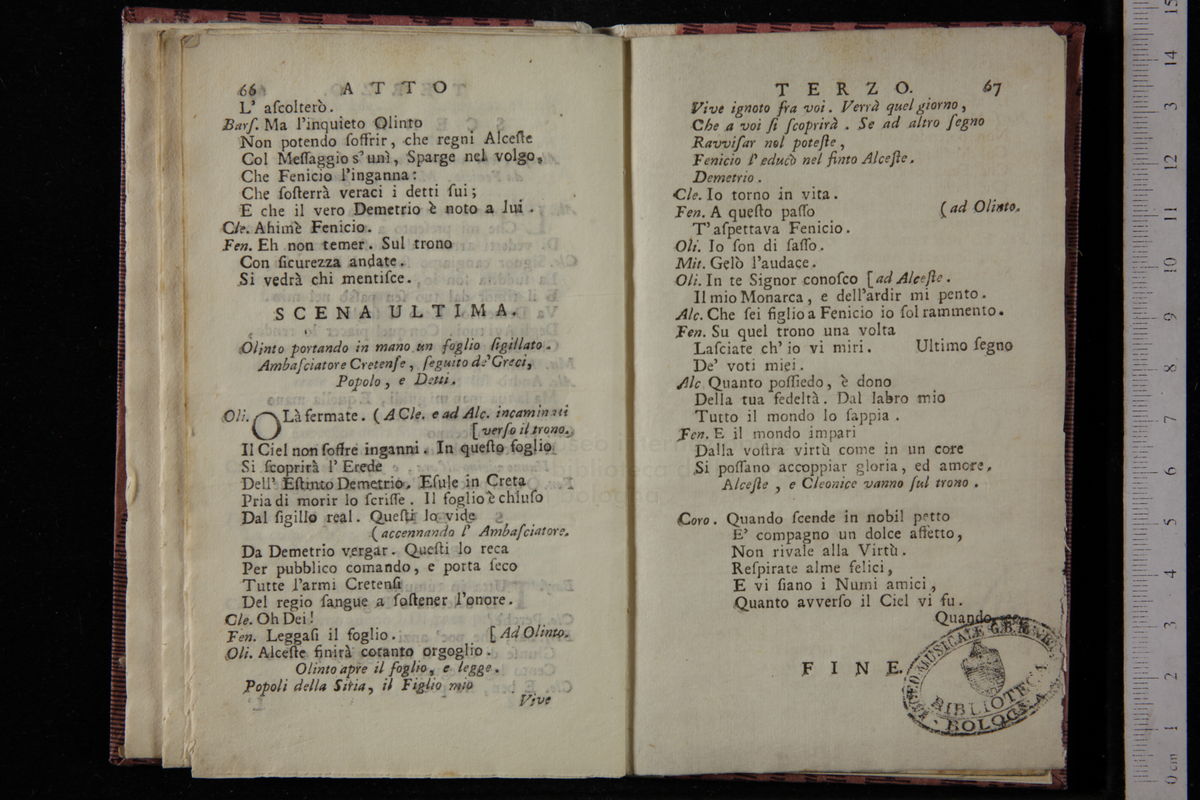 66 ATTO
L' aſcolterò.
Barſ. Ma l'inquieto Olinto
Non potendo ſoffrir, che regni Alceſte
Col Meſſaggio s'unì, Sparge nel volgo,
Che Fenicio l'inganna:
Che ſoſterrà veraci i detti ſui;
E che il vero Demetrio è noto a lui.
Cle. Ahimè Fenicio.
Fen. Eh non temer. Sul trono
Con ſicurezza andate.
Si vedrà chi mentiſce.
SCENA ULTIMA.
Olinto portando in mano un foglio ſigillato.
Ambaſciatore Cretenſe, ſeguito de' Greci,
Popolo, e Detti.
Oli. OLà fermate. (A Cle. e ad Alc. incaminati
[verſo il trono.
Il Ciel non ſoffre inganni. In queſto foglio
Si ſcoprirà l' Erede
Dell' Eſtinto Demetrio. Eſule in Creta
Pria di morir lo ſcriſſe. Il foglio è chiuſo
Dal ſigillo real. Queſti lo vide
(accennando l' Ambaſciatore.
Da Demetrio vergar. Queſti lo reca
Per pubblico comando, e porta ſeco
Tutte l'armi Cretenſi
Del regio ſangue a ſoſtener l'onore.
Cle. Oh Dei!
Fen. Leggaſi il foglio. [Ad Olinto.
Oli. Alceſte finirà cotanto orgoglio.
Olinto apre il foglio, e legge.
Popoli della Siria, il Figlio mio
Vive
TERZO. 67
Vive ignoto fra voi. Verrà quel giorno,
Che a voi ſi ſcoprirà. Se ad altro ſegno
Ravviſar nol poteſte,
Fenicio l' educò nel finto Alceſte.
Demetrio.
Cle. Io torno in vita.
Fen. A queſto paſſo (ad Olinto.
T' aſpettava Fenicio.
Oli. Io ſon di ſaſſo.
Mit. Gelò l'audace.
Oli. In te Signor conoſco [ad Alceſte.
Il mio Monarca, e dell'ardir mi pento.
Alc. Che ſei figlio a Fenicio io ſol rammento.
Fen. Su quel trono una volta
Laſciate ch' io vi miri. Ultimo ſegno
De' voti miei.
Alc. Quanto poſſiedo, è dono
Della tua fedeltà. Dal labro mio
Tutto il mondo lo ſappia.
Fen. E il mondo impari
Dalla voſtra virtù come in un core
Si poſſano accoppiar gloria, ed amore.
Alceſte, e Cleonice vanno ſul trono.
Coro. Quando ſcende in nobil petto
E' compagno un dolce affetto,
Non rivale alla Virtù.
Reſpirate alme felici,
E vi ſiano i Numi amici,
Quanto avverſo il Ciel vi fu.
Quando
FINE.
LICEO MUSICALE G.B. MARTINI
BIBLIOTECA
BOLOGNA